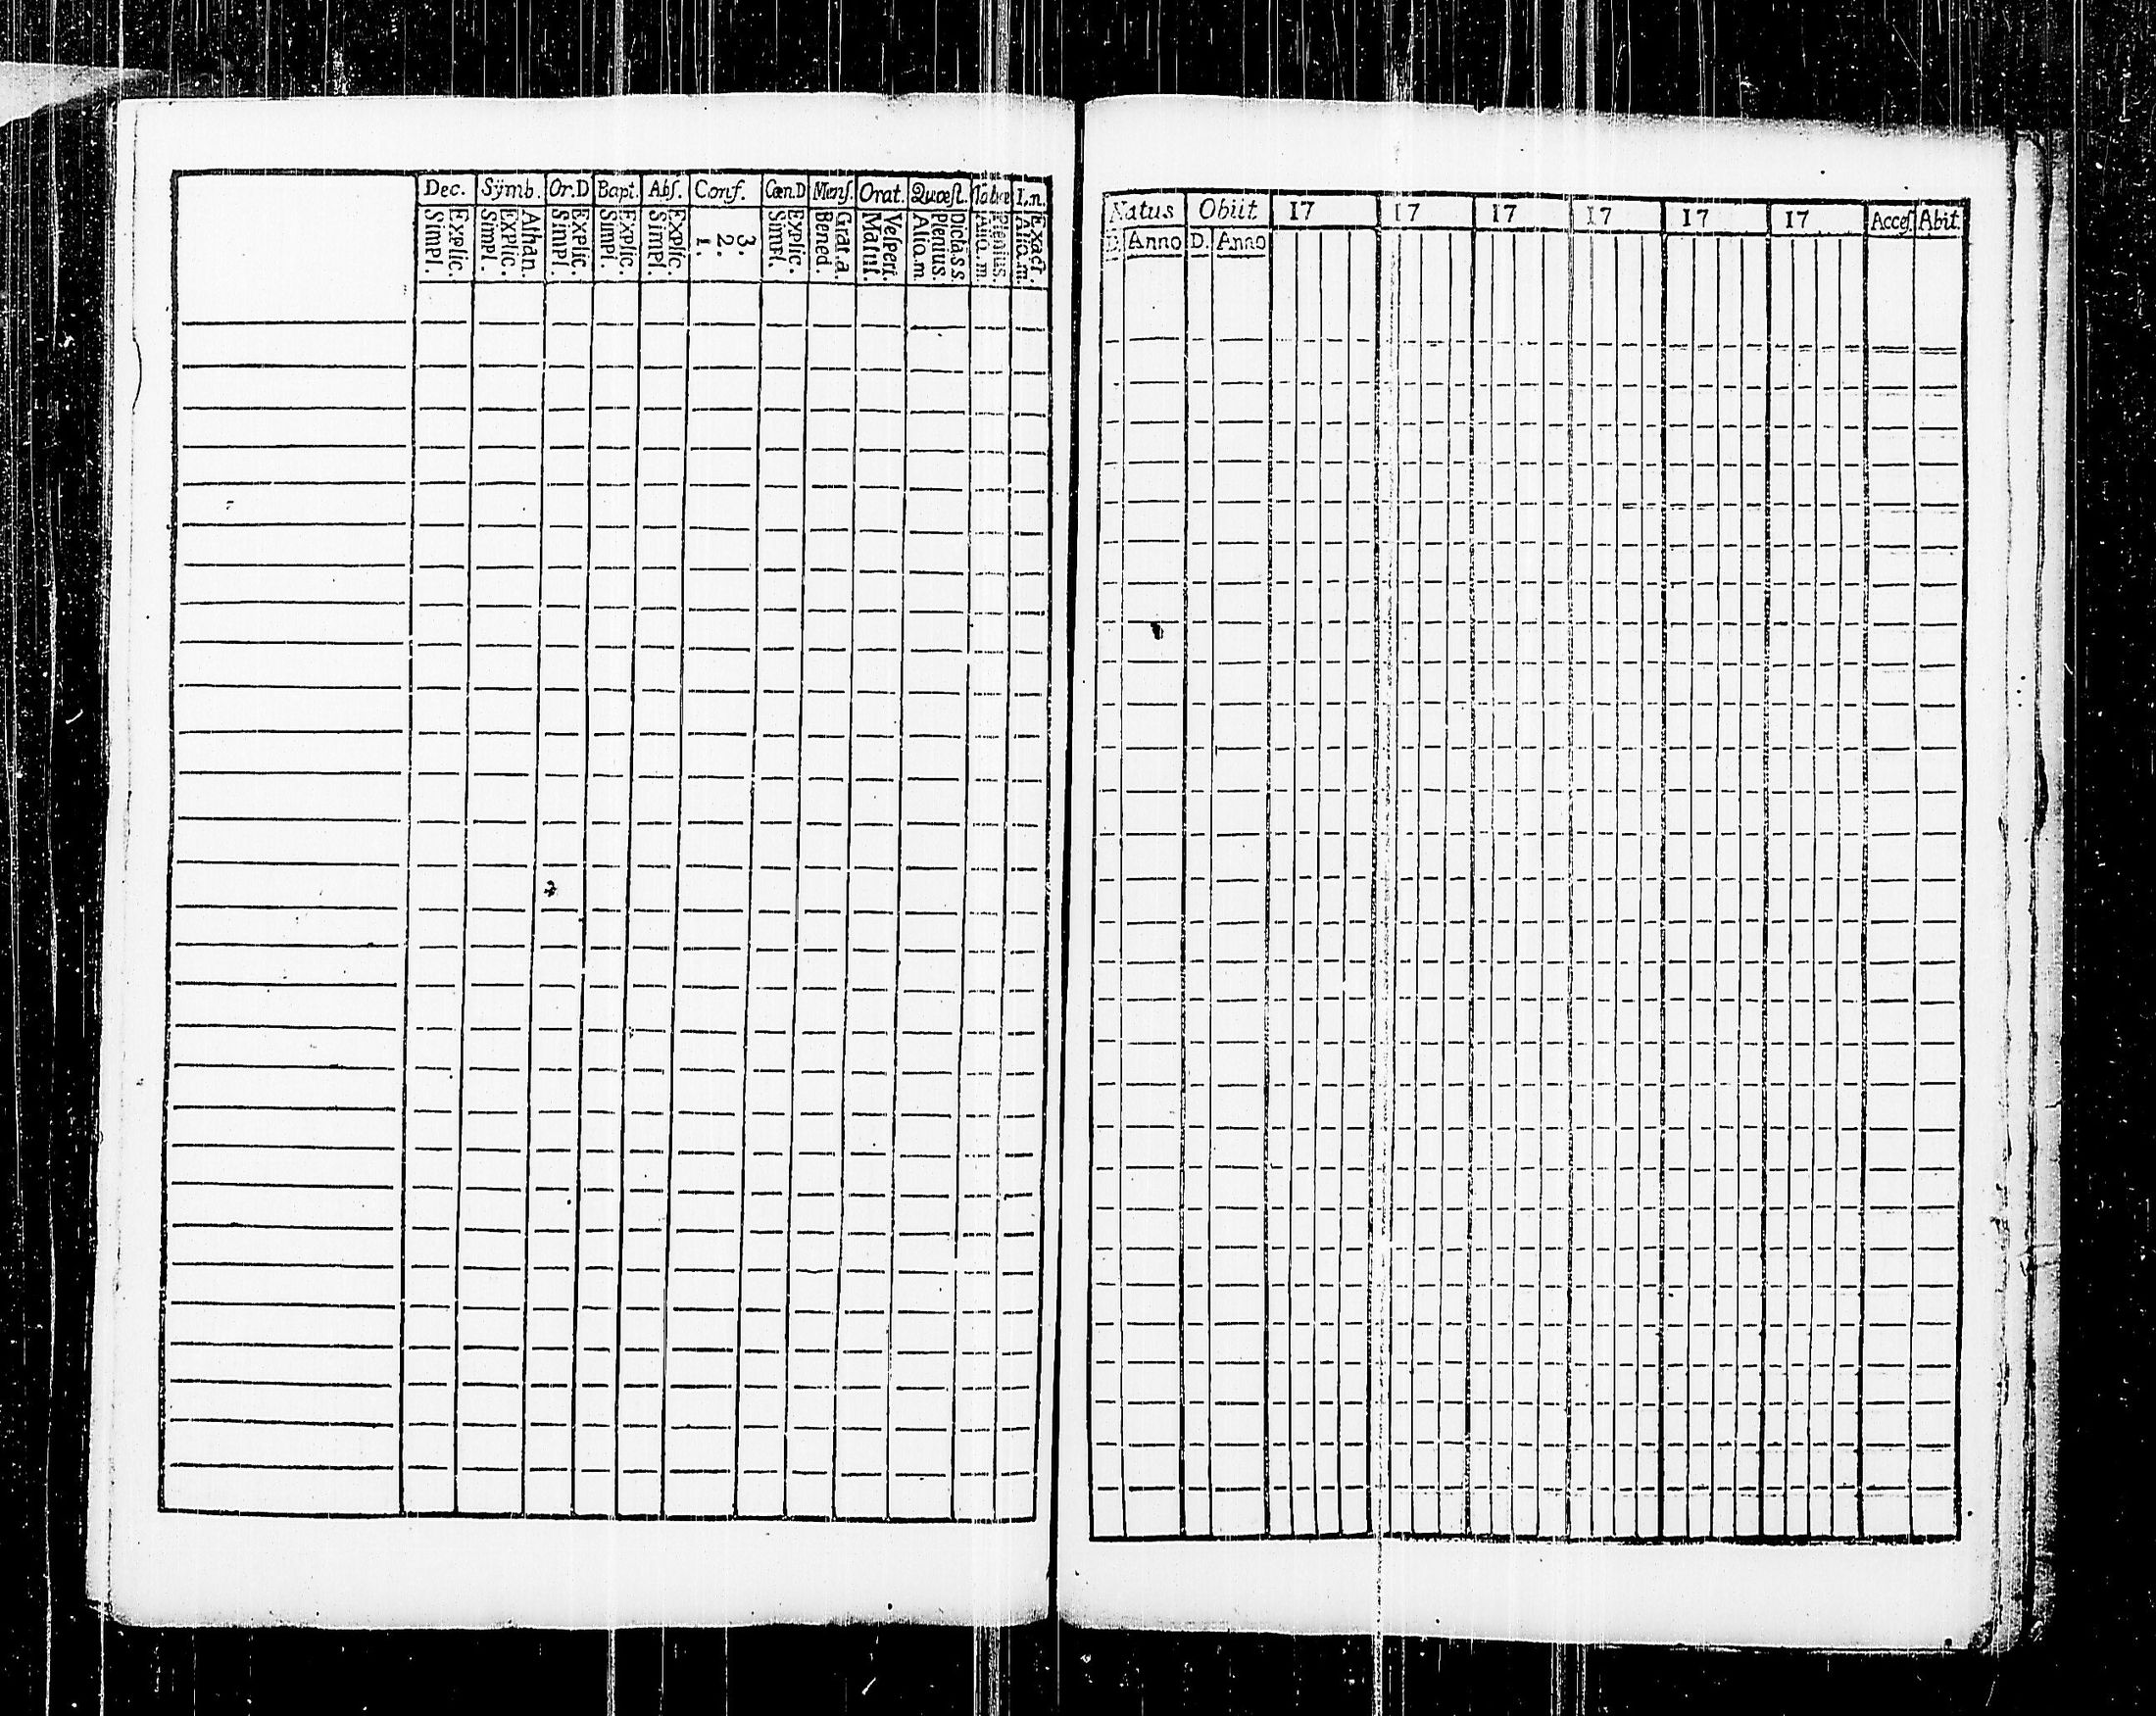 Dec. Sÿmb. Or.D Bapt. Abſ. Conf. Cœn.D Menſ. Orat. Quœſt. Tabœ I.n.
Explic. Simpl.
Athan. Explic. Simpl.
Explic. Simpl.
Explic. Simpl.
Explic. Simpl.
3. 2. 1.
Explic. Simpl.
Grat.a. Bened.
Veſperi. Matut.
Dicta.s.s. Plenius. Alio.m.
Plenius. Alio.m.
Exact. Alio.m.
Natus Obiit 17 17 17 17 17 17 Acceſ. Abit.
D. Anno D. Anno